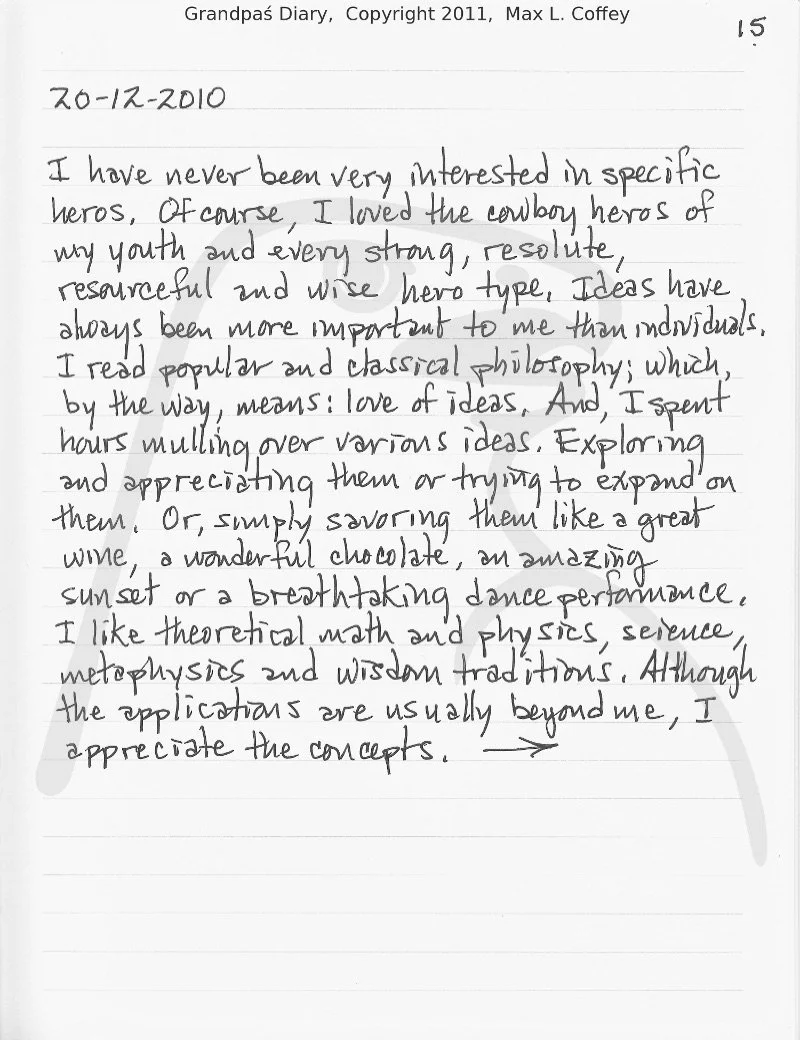 Grandpaś Diary, Copyright 2011, Max L. Coffey
15
20-12-2010
I have never been very interested in specific
heros. Of course, I loved the cowboy heros of
my youth and every strong, resolute,
resourceful and wise hero type. Ideas have
always been more important to me than individuals.
I read popular and classical philosophy; which,
by the way, means: love of ideas. And, I spent
hours mulling over various ideas. Exploring
and appreciating them or trying to expand on
them. Or, simply savoring them like a great
wine, a wonderful chocolate, an amazing
sunset or a breathtaking dance performance.
I like theoretical math and physics, science,
metaphysics and wisdom traditions. Although
the applications are usually beyond me, I
appreciate the concepts. →